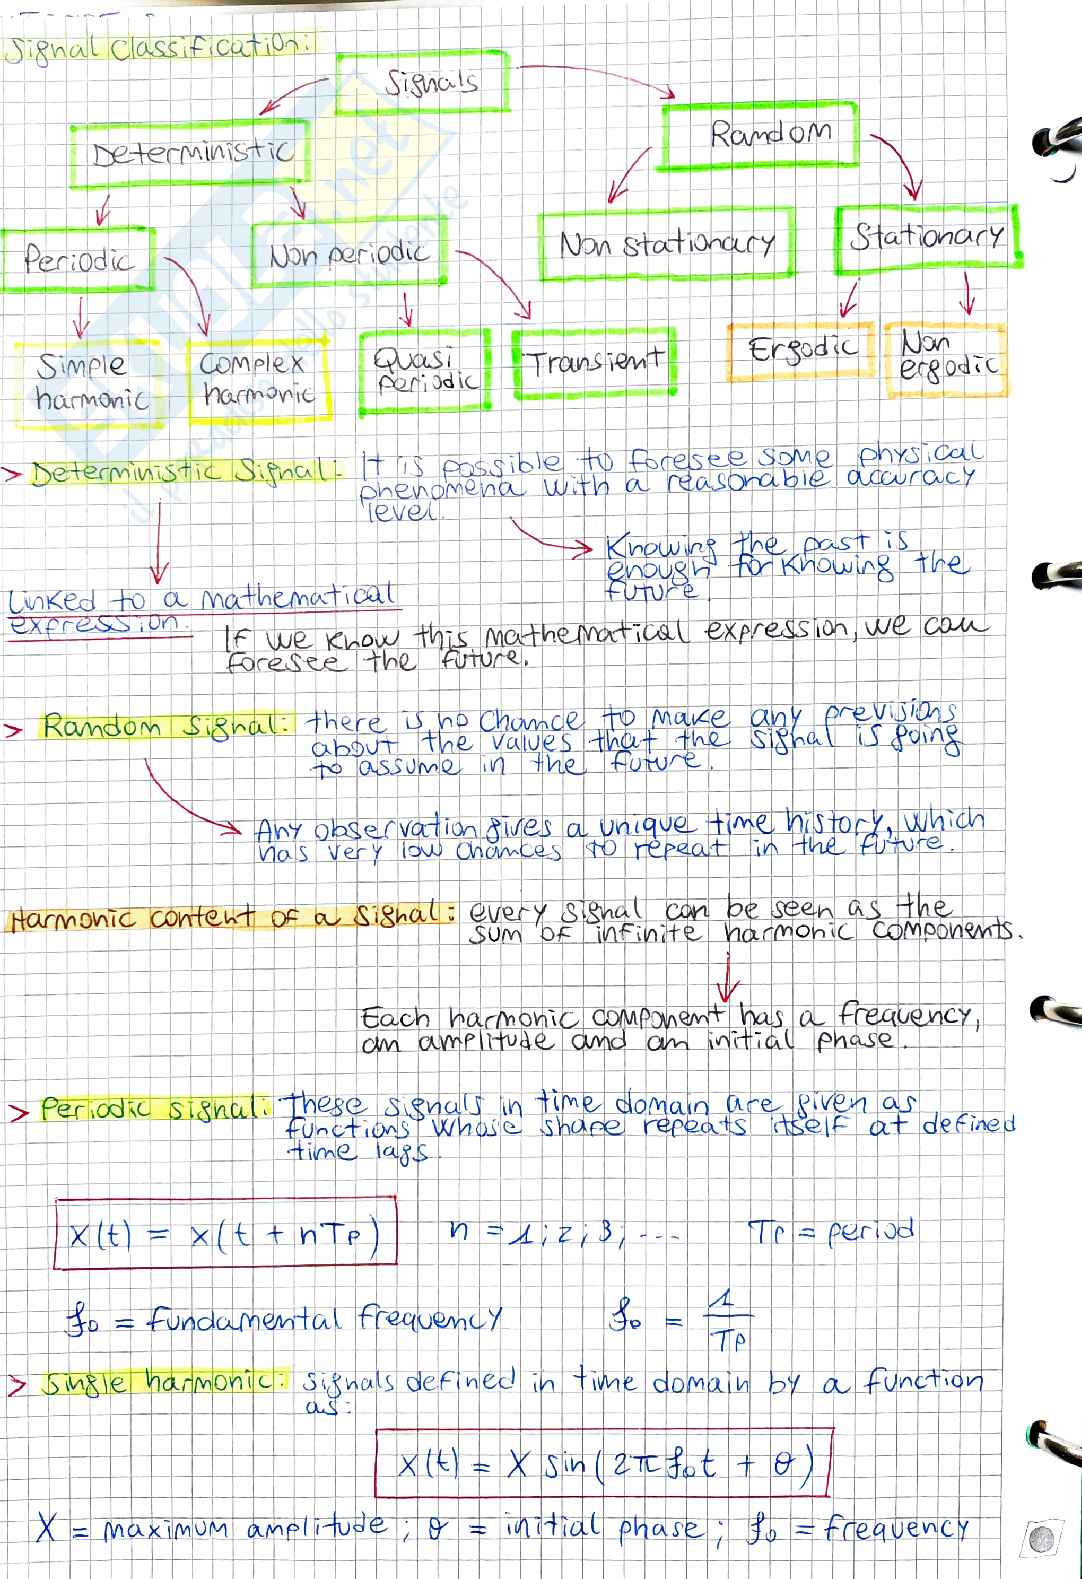 Signal classification:
Signals
Deterministic
Random
Periodic
Non periodic
Non stationary
Stationary
Simple
harmonic
Complex
harmonic
Quasi
periodic
Transient
Ergodic
Non
ergodic
> Deterministic Signal: It is possible to foresee some physical
phenomena with a reasonable accuracy
level.
Knowing the past is
enough for knowing the
future.
Linked to a mathematical
expression.
If we know this mathematical expression, we can
foresee the future.
> Random Signal: there is no chance to make any previsions
about the values that the signal is going
to assume in the future.
Any observation gives a unique time history, which
has very low chances to repeat in the future.
Harmonic content of a signal: every signal can be seen as the
sum of infinite harmonic components.
Each harmonic component has a frequency,
an amplitude and an initial phase.
> Periodic signal: These signals in time domain are given as
functions whose shape repeats itself at defined
time lags.
x(t) = x(t + nTp) n = 1; 2; 3; ... Tp = period
f0 = fundamental frequency f0 = 1/Tp
> Single harmonic: signals defined in time domain by a function
as:
x(t) = X sin(2π f0 t + θ)
X = maximum amplitude; θ = initial phase; f0 = frequency